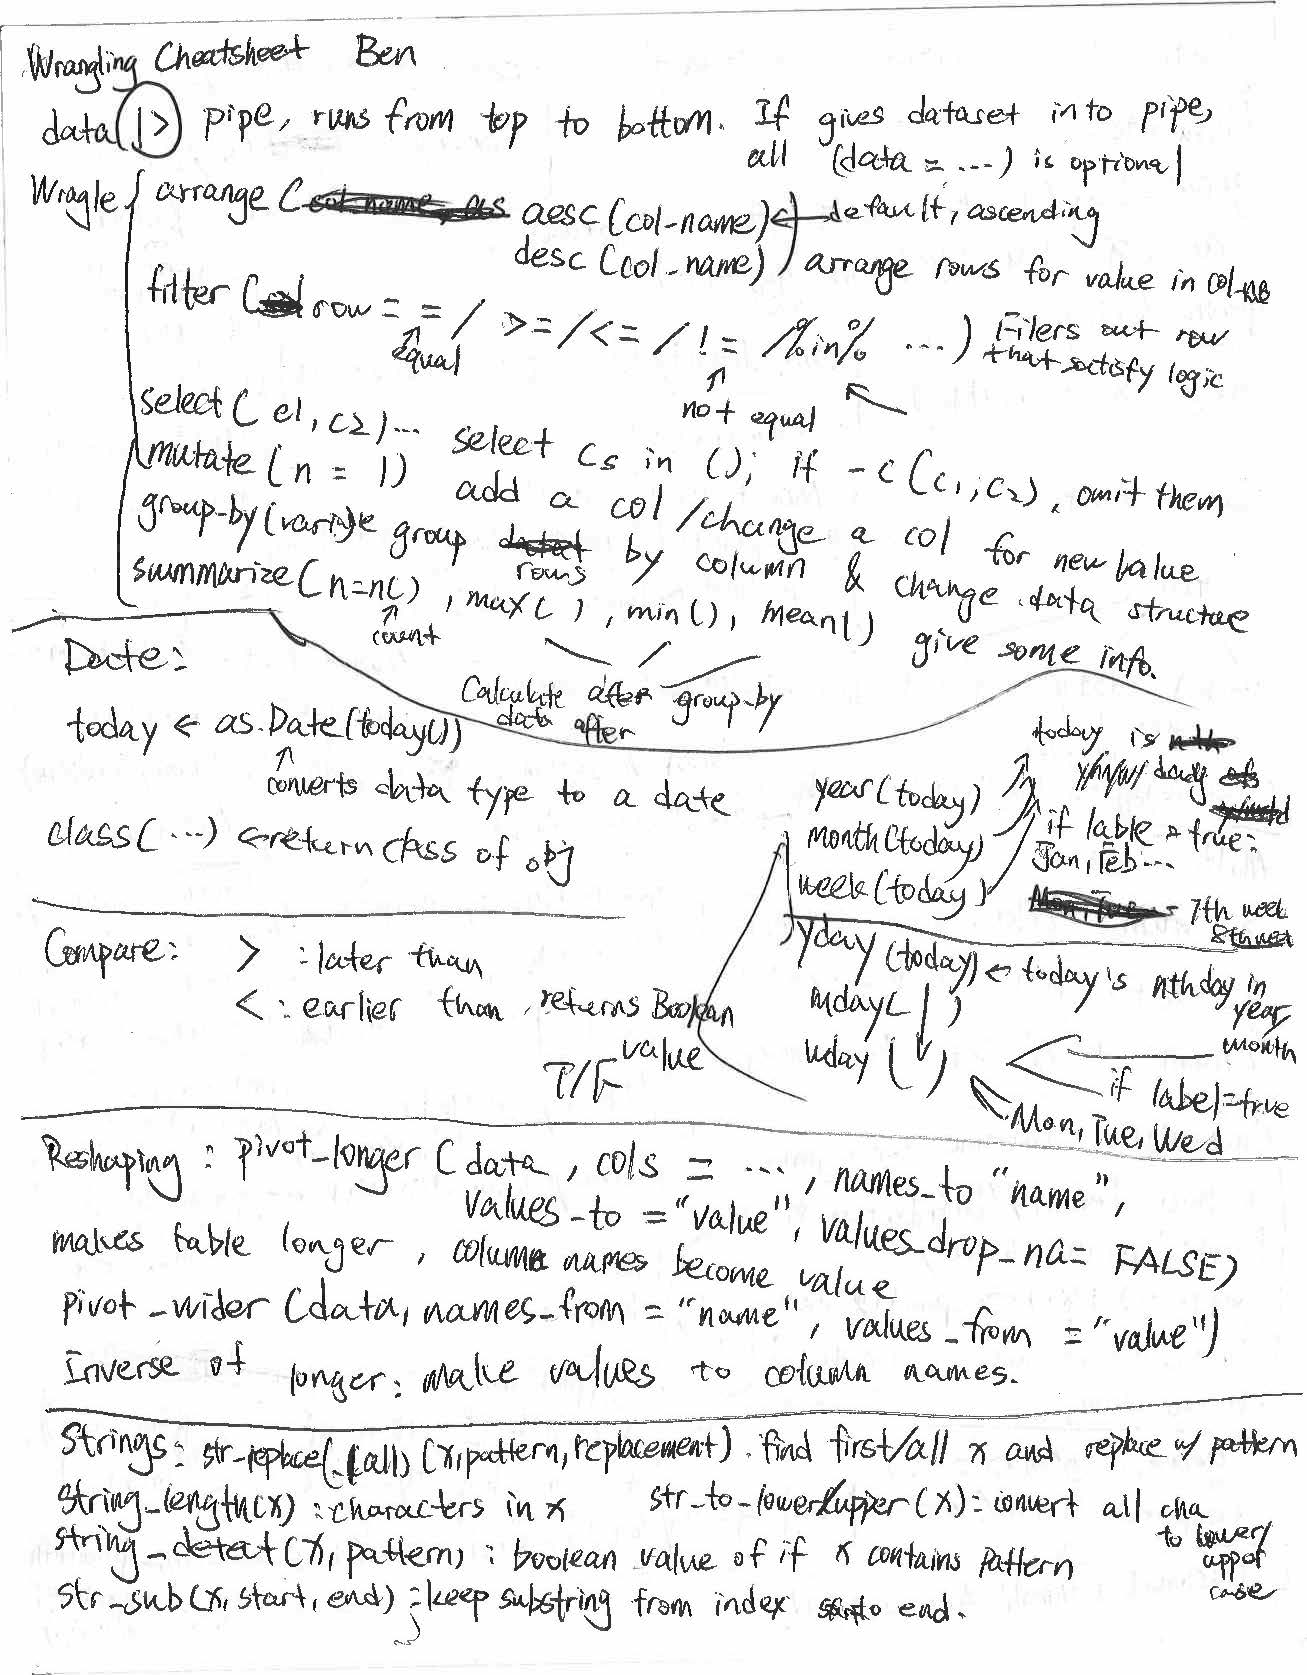 Wrangling Cheatsheet Ben
data |> pipe, runs from top to bottom. If gives dataset into pipe,
all (data = ...) is optional
Wragle { arrange ( aesc (col-name) ← default, ascending
desc (col-name) arrange rows for value in col-na
filter ( row == / >= / <= / != / %in% ...) Filers out row
that satisfy logic
equal
not equal
select( c1, c2) ... select cs in (); if -c (c1, c2), omit them
mutate (n = 1) add a col / change a col for new value
group-by (variable group rows by column & change data structue
summarize (n=n(), max( ), min(), mean() give some info.
count
Calculate after group-by
data after
Date:
today ← as.Date(today())
converts data type to a date
class(...) ← return class of obj
year(today)
month(today)
week(today)
today is
y/m/w/
if lable = true:
Jan, Feb ...
7th week
8th week
yday (today) ← today's nth day in
year,
month
mday( )
wday ( )
if label=true
Mon, Tue, Wed
Compare: > : later than
< : earlier than, returns Boolean
value
T/F
Reshaping : pivot_longer (data, cols = ..., names_to "name",
values_to = "value", values_drop_na= FALSE)
makes table longer, column names become value
pivot_wider (data, names_from = "name", values_from = "value")
Inverse of longer: make values to column names.
Strings: str-replace(_all) (x, pattern, replacement). find first/all x and replace w/ pattern
String_length(x) : characters in x str_to_lower/upper (x): convert all cha
to lower/
upper
case
string_detect (x, pattern) : boolean value of if x contains pattern
str_sub (x, start, end) : keep substring from index to end.